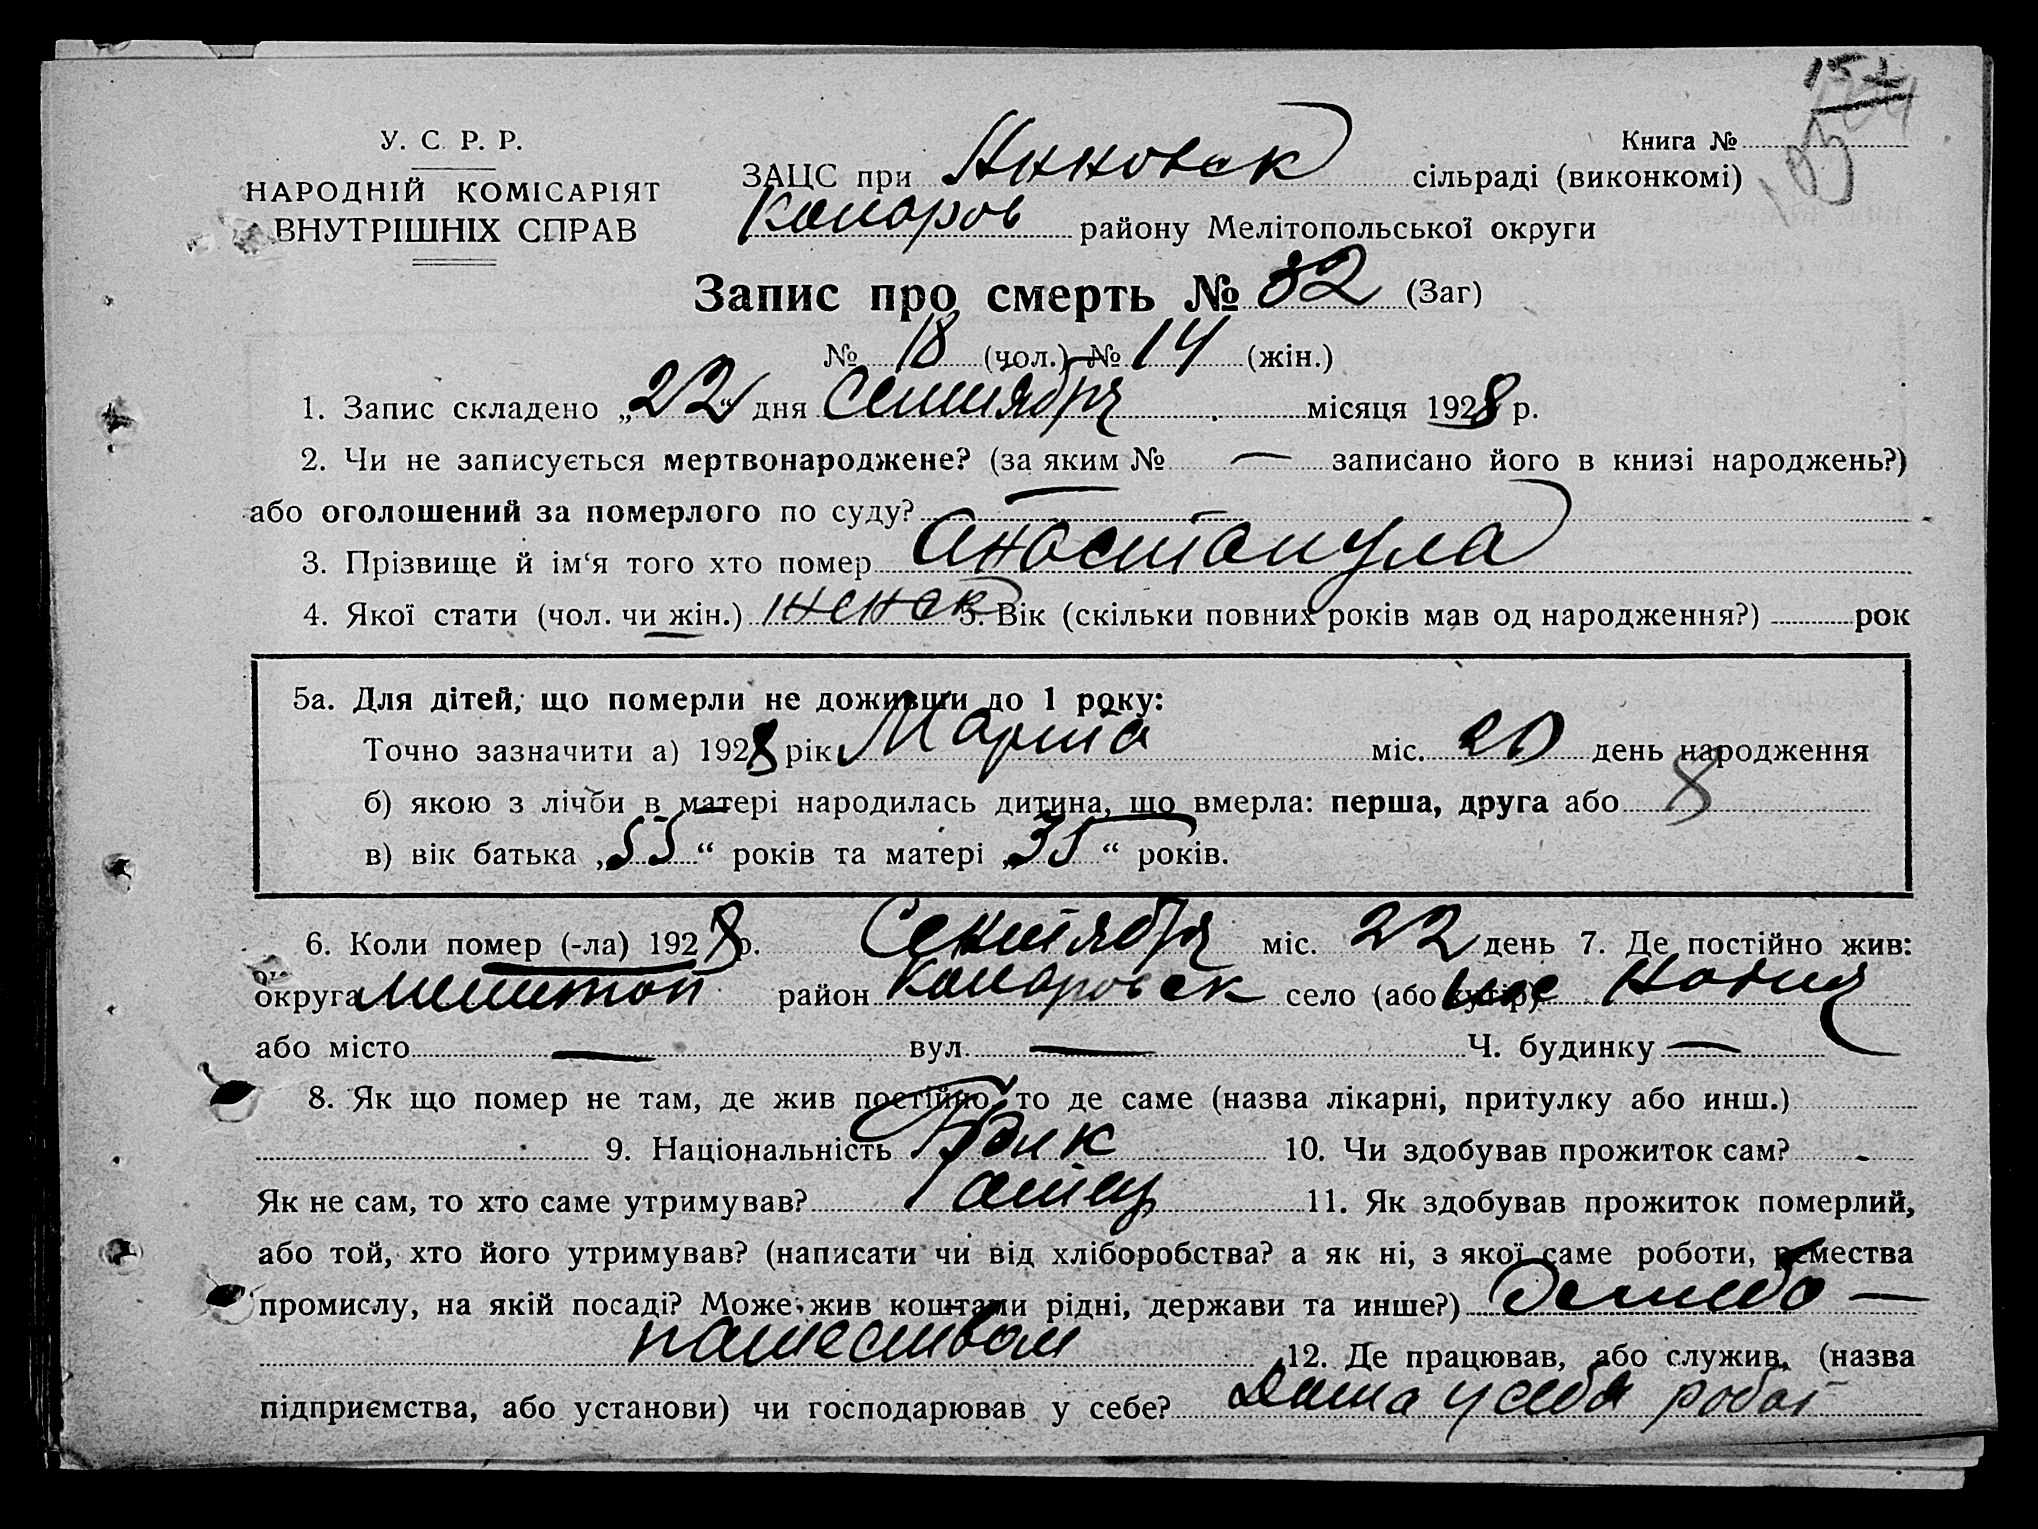 152
Книга №
У. С. Р. Р.
НАРОДНІЙ КОМІСАРІЯТ
ВНУТРІШНІХ СПРАВ
ЗАЦС при сільраді (виконкомі)
району Мелітопольської округи
Запис про смерть № 32 (Заг)
№ 18 (чол.) № 14 (жін.)
1. Запис складено „22“ дня Сентября місяця 1928 р.
2. Чи не записується мертвонароджене? (за яким № — записано його в книзі народжень?)
або оголошений за померлого по суду?
3. Прізвище й ім‘я того хто помер
4. Якої стати (чол. чи жін.) женск 5. Вік (скільки повних років мав од народження?) рок
5а. Для дітей, що померли не доживши до 1 року:
Точно зазначити а) 1928 рік Марта міс. 20 день народження
б) якою з лічби в матері народилась дитина, що вмерла: перша, друга або 8
в) вік батька „55“ років та матері „35“ років.
6. Коли помер (-ла) 1928 р. Сентября міс. 22 день 7. Де постійно жив:
округа Мелитоп район село (або хутір)
або місто — вул. — Ч. будинку —
8. Як що помер не там, де жив постійно, то де саме (назва лікарні, притулку або инш.)
9. Національність Грек 10. Чи здобував прожиток сам?
Як не сам, то хто саме утримував? 11. Як здобував прожиток померлий,
або той, хто його утримував? (написати чи від хліборобства? а як ні, з якої саме роботи, ремества
промислу, на якій посаді? Може жив коштами рідні, держави та инше?) Землебо—
пашеством 12. Де працював, або служив, (назва
підприємства, або установи) чи господарював у себе? Дома у себя работ